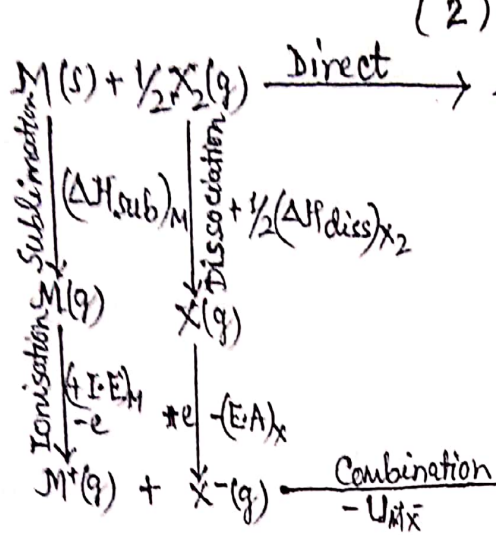 (2)
M(s) + 1/2 X₂(g) Direct
Sublimation
(ΔHsub)M
Dissociation
+ 1/2(ΔHdiss)X₂
M(g) X(g)
Ionisation
(+ I·E)M
-e
+e
-(E·A)X
M⁺(g) + X⁻(g) Combination
-U M⁺X⁻